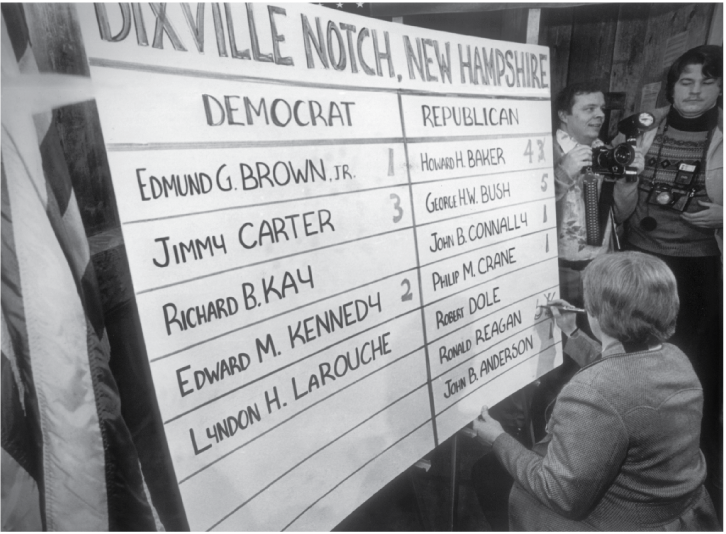 DIXVILLE NOTCH, NEW HAMPSHIRE
DEMOCRAT
EDMUND G. BROWN, JR. 1
JIMMY CARTER 3
RICHARD B. KAY
EDWARD M. KENNEDY 2
LYNDON H. LAROUCHE
REPUBLICAN
HOWARD H. BAKER 4
GEORGE H.W. BUSH 5
JOHN B. CONNALLY 1
PHILIP M. CRANE 1
ROBERT DOLE
RONALD REAGAN
JOHN B. ANDERSON